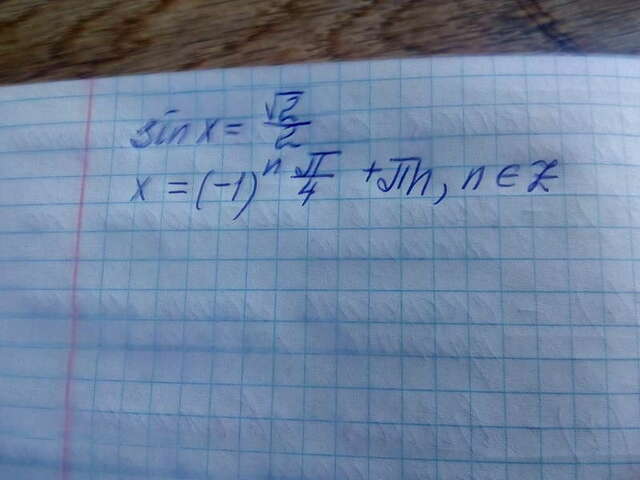 sin x = √2/2
x = (-1)^n π/4 + πn, n ∈ Z